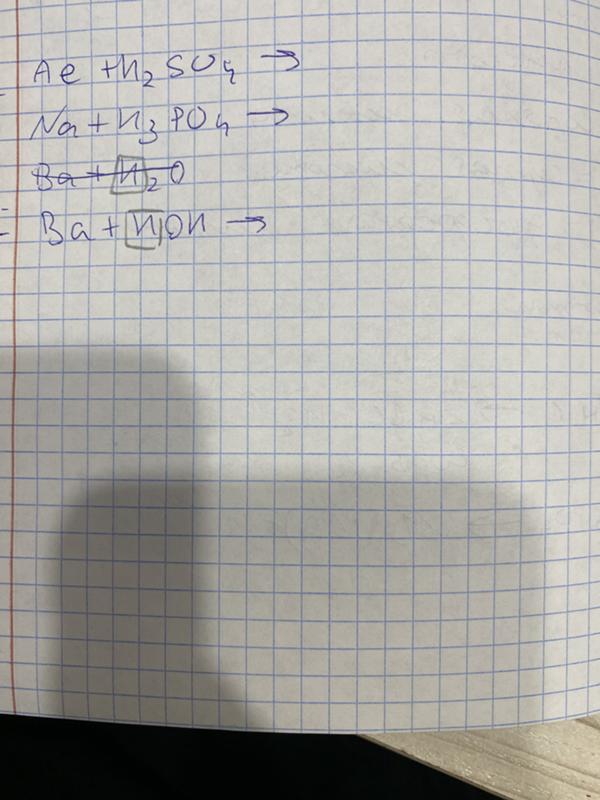 Al + H₂SO₄ →
Na + H₃PO₄ →
Ba + H₂O
Ba + HOH →